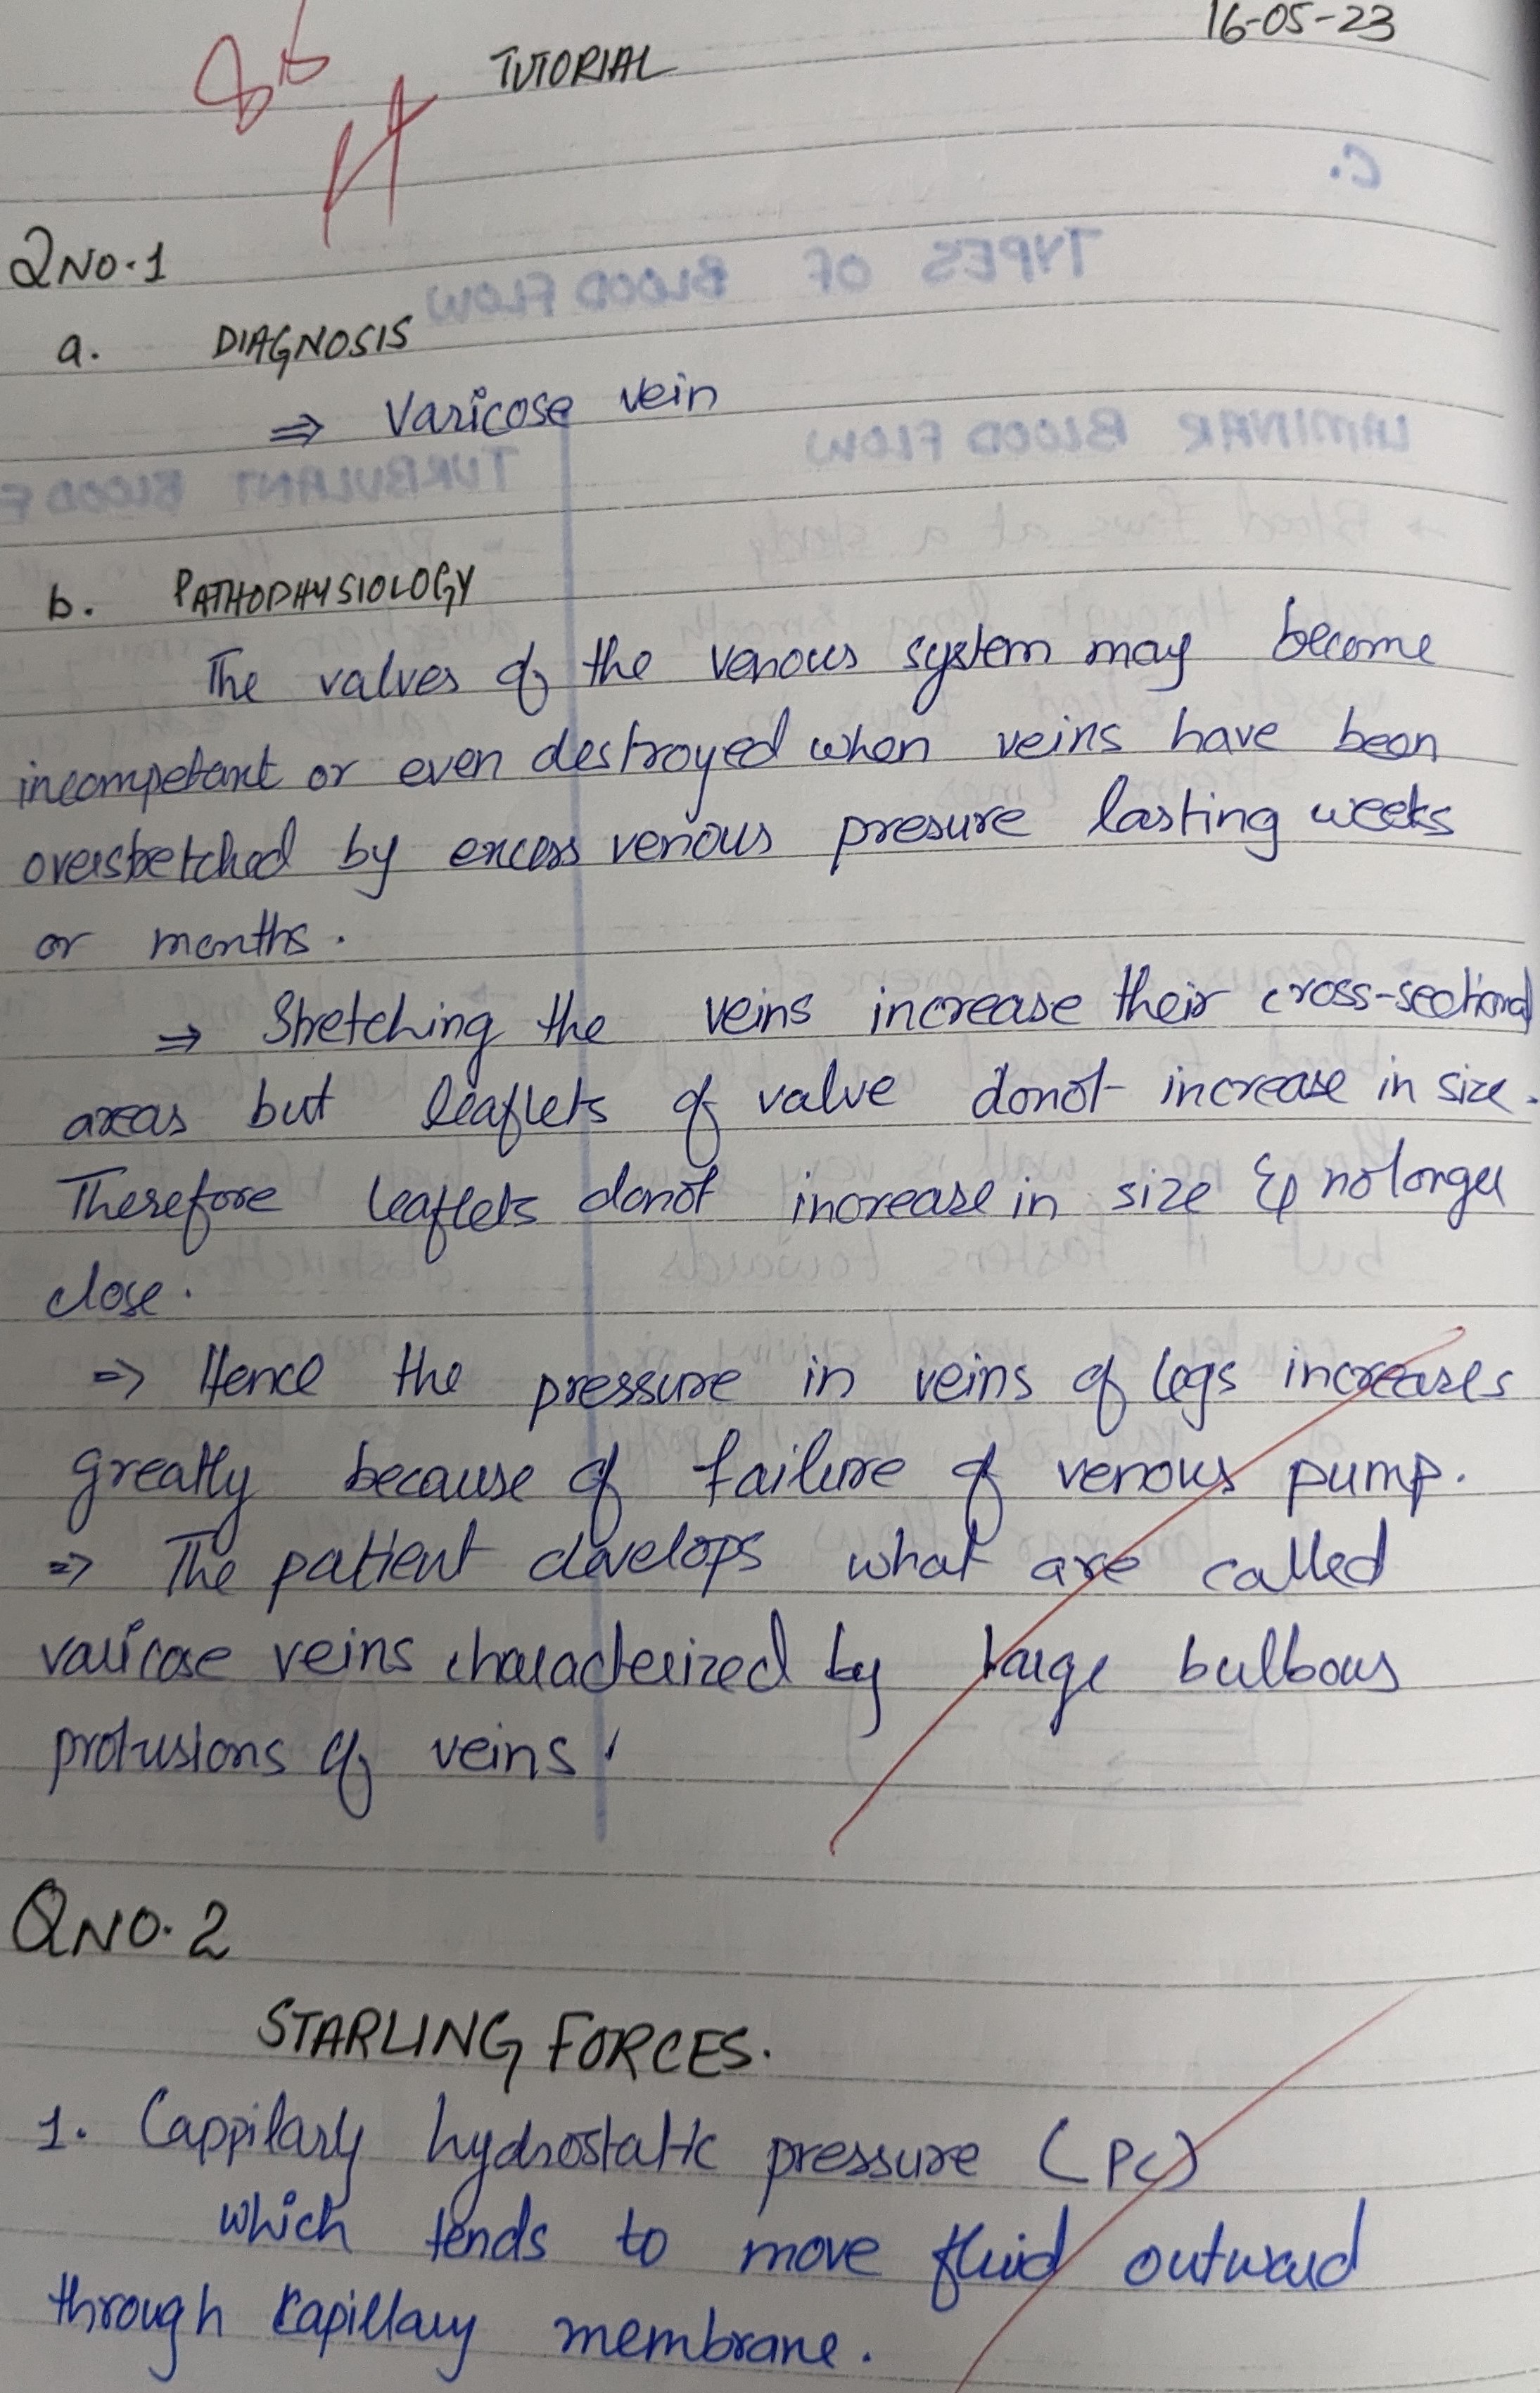 16-05-23
TUTORIAL
QNO.1
a. DIAGNOSIS
⇒ Varicose vein
b. PATHOPHYSIOLOGY
The valves of the venous system may become
incompetant or even destroyed when veins have been
overstretched by excess venous presure lasting weeks
or months.
⇒ Stretching the veins increase their cross-sectional
areas but leaflets of valve donot increase in size.
Therefore leaflets donot increase in size & no longer
close.
⇒ Hence the pressure in veins of legs increases
greatly because of failure of venous pump.
⇒ The patient develops what are called
varicose veins characterized by large bulbous
protusions of veins.
QNO.2
STARLING FORCES.
1. Cappilary hydrostatic pressure (Pc)
which tends to move fluid outward
through capillary membrane.
C.
TYPES OF BLOOD FLOW
LAMINAR BLOOD FLOW
TURBULANT BLOOD F